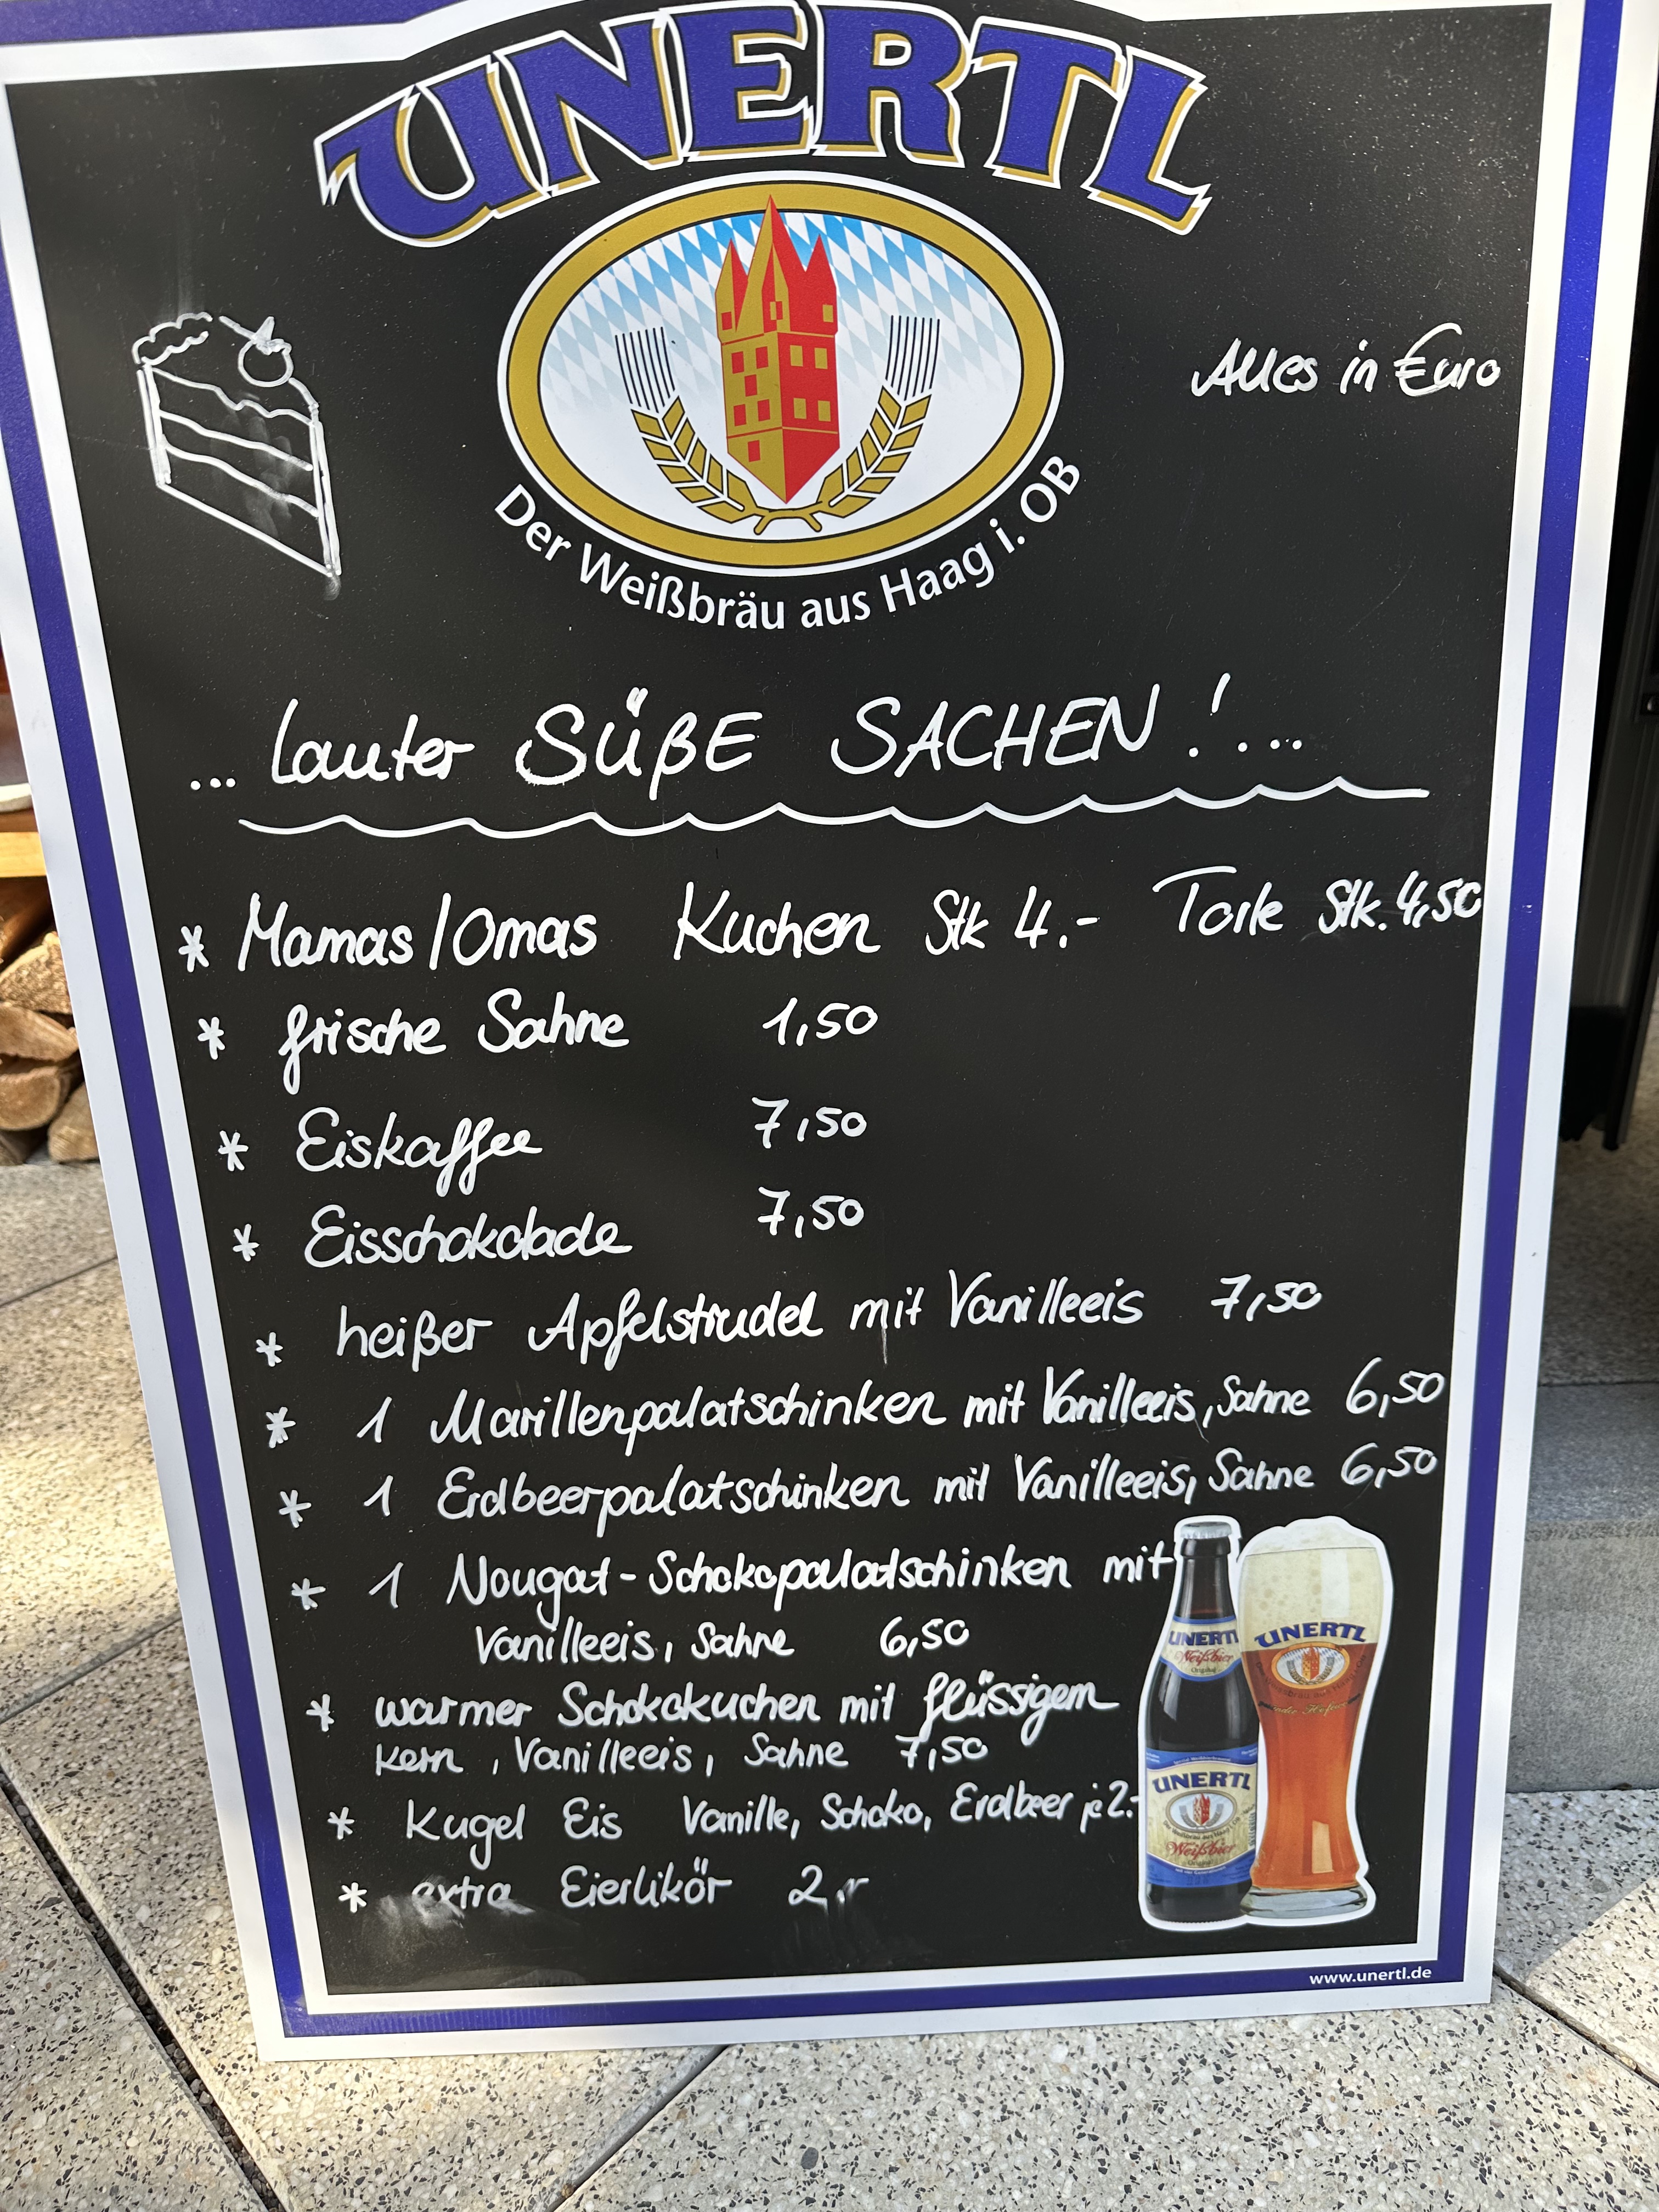 UNERTL
Der Weißbräu aus Haag i. OB
Alles in Euro
... lauter SÜßE SACHEN!...
* Mamas/Omas Kuchen Stk 4.- Torte Stk. 4,50
* frische Sahne 1,50
* Eiskaffee 7,50
* Eisschokolade 7,50
* heißer Apfelstrudel mit Vanilleeis 7,50
* 1 Marillenpalatschinken mit Vanilleeis, Sahne 6,50
* 1 Erdbeerpalatschinken mit Vanilleeis, Sahne 6,50
* 1 Nougat-Schokopalatschinken mit
Vanilleeis, Sahne 6,50
* warmer Schokokuchen mit flüssigem
Kern, Vanilleeis, Sahne 7,50
* Kugel Eis Vanille, Schoko, Erdbeer je 2.-
* extra Eierlikör 2,-
UNERTL
Weißbier
Original
UNERTL
Weißbier
UNERTL
www.unertl.de